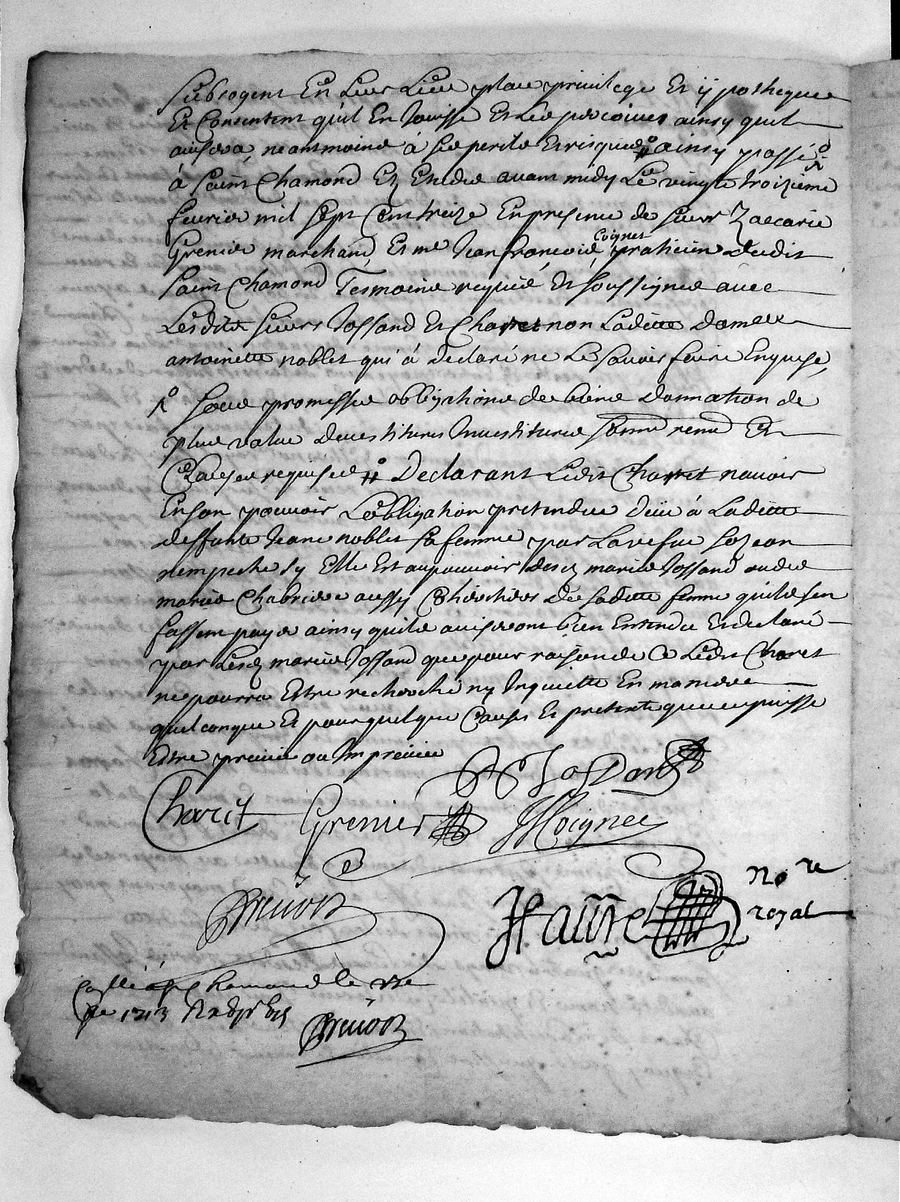 Subrogent En Leur Lieu place privilege Et ypotheque
Et Consentent quil En Jouisse Et Le percoive ainsy quil
avisera, neantmoins à ses perils Et risques # ainsy passé
à Saint Chamond Et Estude avant midy Le vingt troizieme
fevrier mil sept Cent treize En presence de sieurs Zaccarie
Grenier marchand, Et me Jean francois Coignet praticien dudit
Saint Chamond Tesmoins requis Et soussignes avec
Lesdits sieurs Jossand Et Charret non Laditte dame
antoinette noblet qui à declaré ne Le scavoir faire Enquise,
sous promesses obligations de biens
plus value devestitures Investitures
Clauses requises # Declarant Ledit Charret navoir
En son pouvoir Lobligation pretendue Deüe à Laditte
deffunte Jeanne noblet sa femme par La vefve
nempeche sy Elle Est au pouvoir desd mariés Jossand ou des
mariés Chabrier aussy Coheritiers De Laditte femme quils sen
fassent payer ainsy quils aviseront bien Entendu Et declaré
par Lesd mariés Jossand que pour raison de Ce Ledit Charet
ne pourra Estre recherché ny Inquietté En maniere
quelconque Et pour quelque Cause Et pretexte que ce puisse
Estre preveu ou Impreveu
Jossand
Charét Grenier JfCoignet
no re
royal
Chamond le
1713